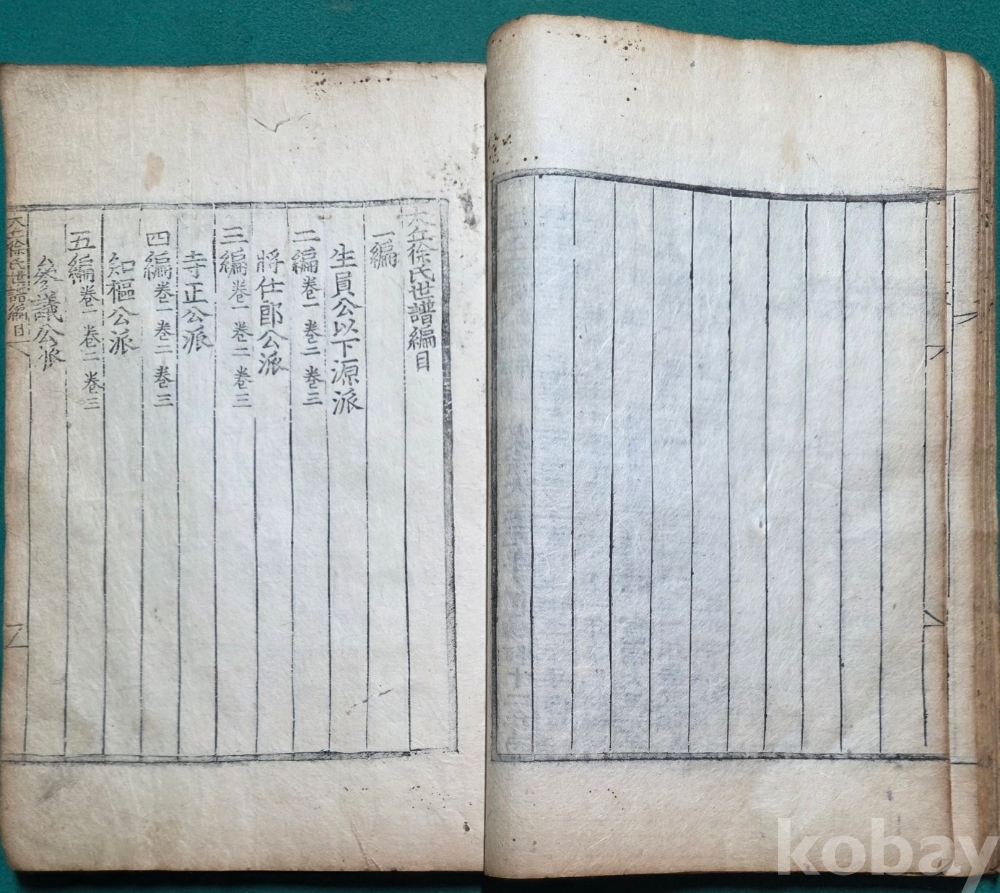 大丘徐氏世譜編目
一編
生員公以下源派
二編 卷一 卷二 卷三
將仕郎公派
三編 卷一 卷二 卷三
寺正公派
四編 卷一 卷二 卷三
知樞公派
五編 卷一 卷二 卷三
參議公派
大丘徐氏世譜編目
kobay